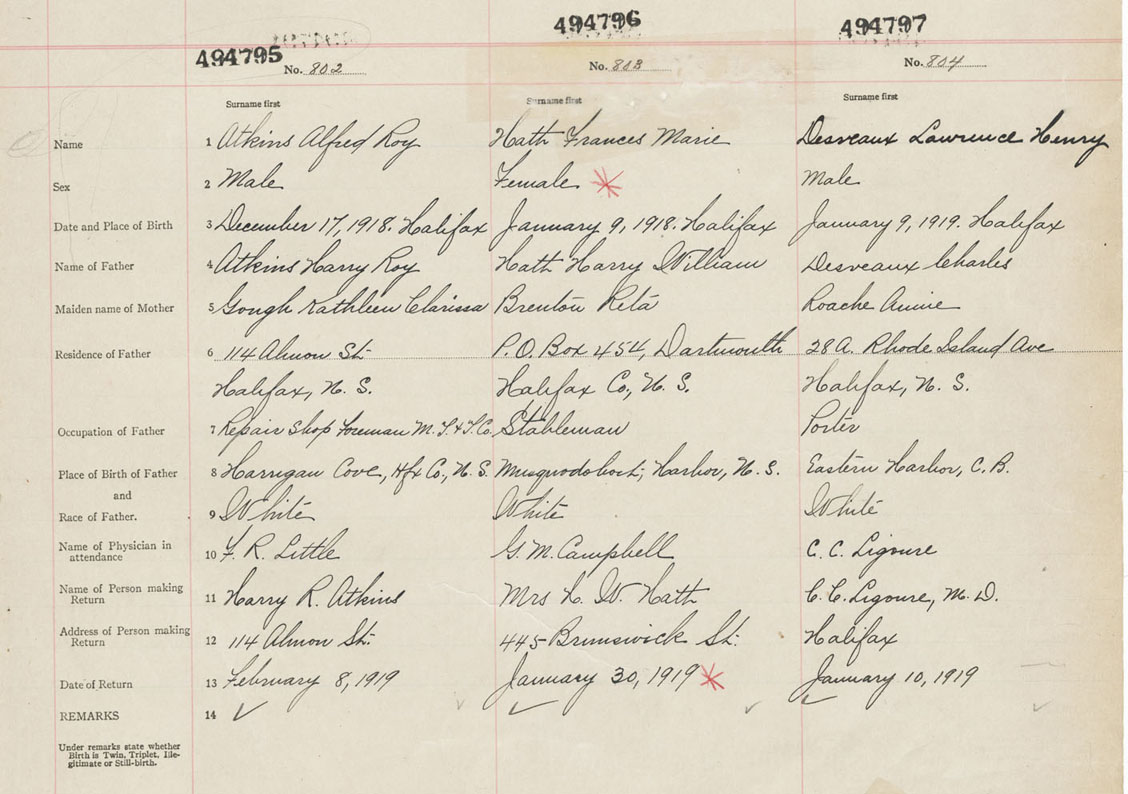 494795 494796 494797
No. 802 No. 803 No. 804
Surname first Surname first Surname first
Name 1 Atkins Alfred Roy Hath Frances Marie Desveaux Lawrence Henry
Sex 2 Male Female Male
Date and Place of Birth 3 December 17, 1918. Halifax January 9, 1918. Halifax January 9, 1919. Halifax
Name of Father 4 Atkins Harry Roy Hath Harry William Desveaux Charles
Maiden name of Mother 5 Gough Kathleen Clarissa Brenton Reta Roache Annie
Residence of Father 6 114 Almon St. P.O. Box 454, Dartmouth 28A. Rhode Island Ave
Halifax, N. S. Halifax Co., N. S. Halifax, N. S.
Occupation of Father 7 Repair Shop Foreman M. T. & T. Co. Stableman Porter
Place of Birth of Father 8 Harrigan Cove, Hfx Co., N. S. Musquodoboit, Harbor, N. S. Eastern Harbor, C. B.
and
Race of Father. 9 White White White
Name of Physician in
attendance 10 F. R. Little G. M. Campbell C. C. Ligoure
Name of Person making
Return 11 Harry R. Atkins Mrs H. W. Hath C. C. Ligoure, M. D.
Address of Person making
Return 12 114 Almon St. 445 Brunswick St. Halifax
Date of Return 13 February 8, 1919 January 30, 1919 January 10, 1919
REMARKS 14
Under remarks state whether
Birth is Twin, Triplet, Ille-
gitimate or Still-birth.